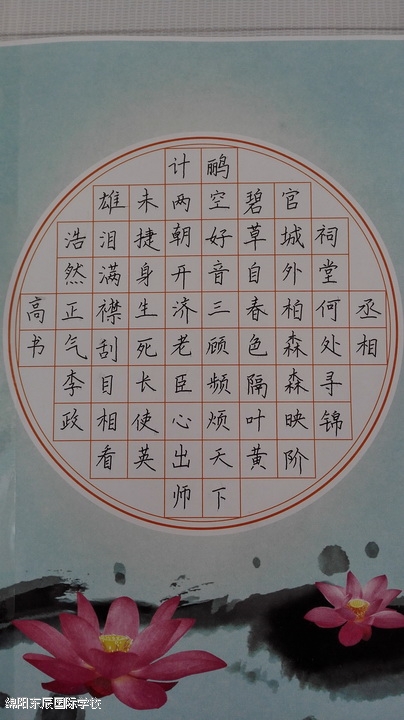 丞相
祠堂何处寻锦
官城外柏森森映阶
碧草自春色隔叶黄
鹂空好音三顾频烦天下
计两朝开济老臣心出师
未捷身生死长使英
雄泪满襟刮目相看
浩然正气李政
高书
绵阳东辰国际学校